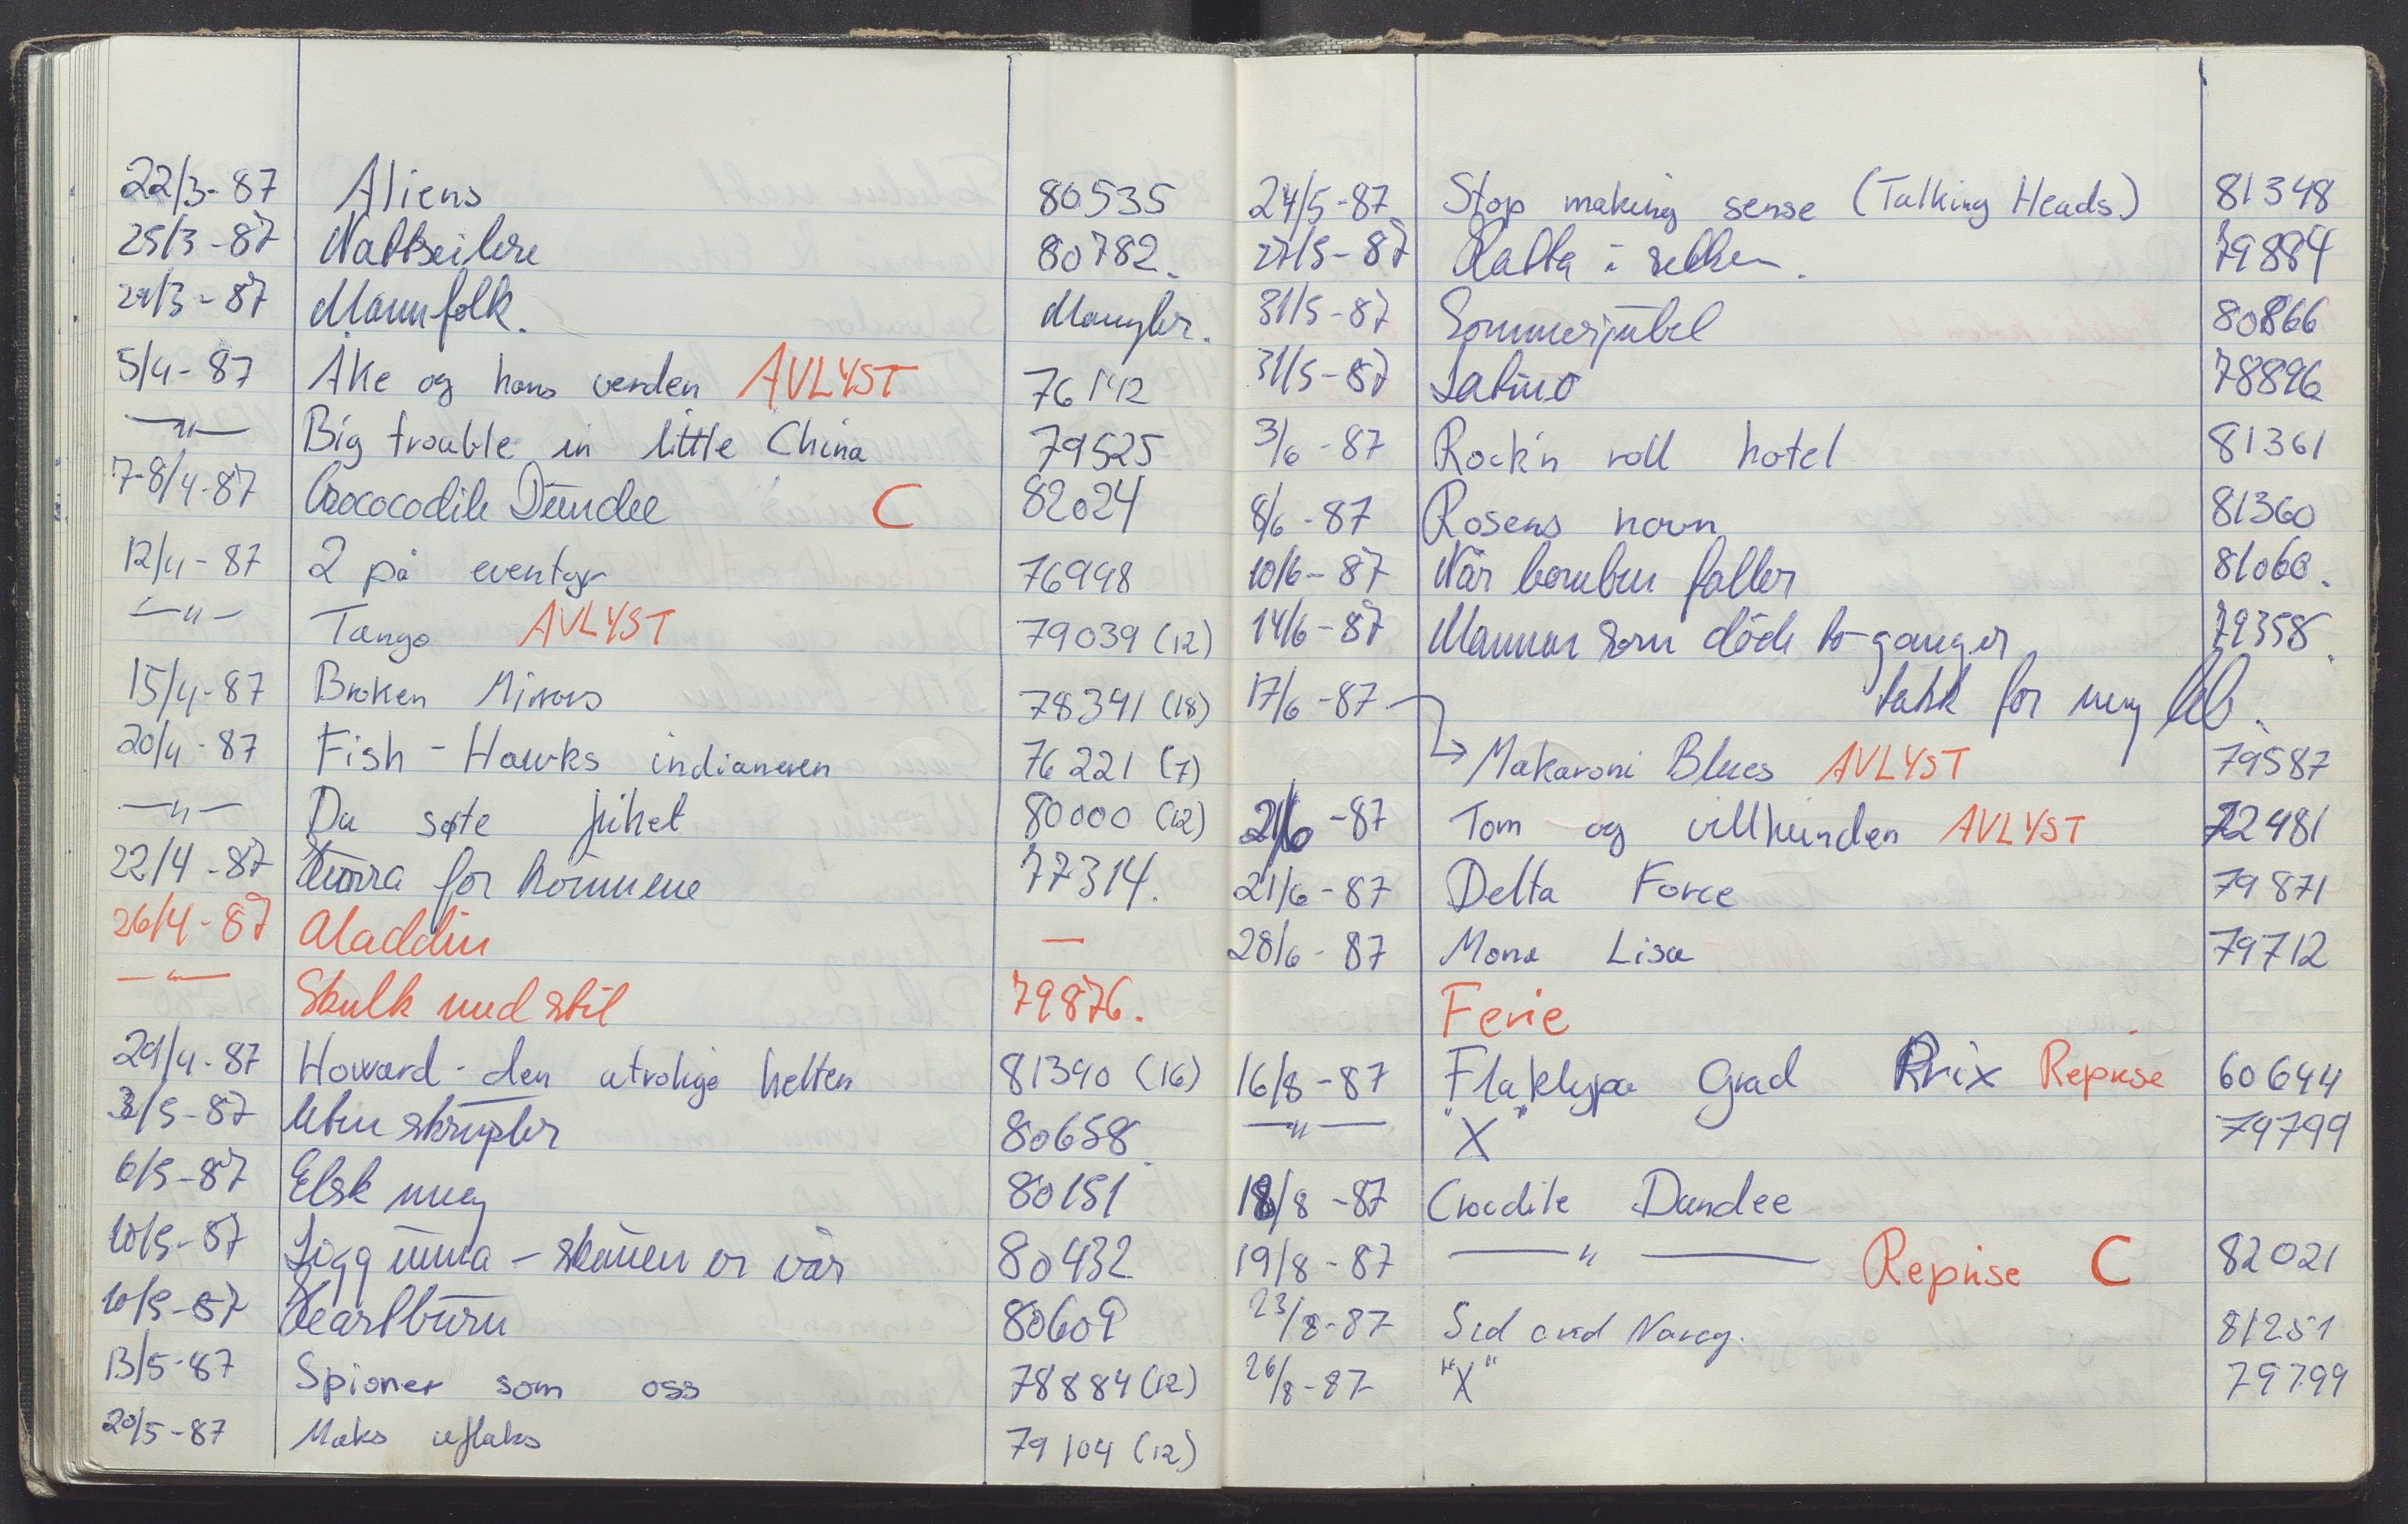 22/3-87 Aliens 80535
25/3-87 Nattseilere 80782.
29/3-87 Mannfolk. Mangler.
5/4-87 Åke og hans verden AVLYST 76142
—"— Big trouble in little China 79525
7-8/4-87 Crococodile Dundee C 82024
12/4-87 2 på eventyr 76948
—"— Tango AVLYST 79039 (12)
15/4-87 Broken Mirrors 78341 (18)
20/4-87 Fish-Hawks indianeren 76221 (7)
—"— Du søte juhet 80000 (12)
22/4-87 Hurra for hommene 77314.
26/4-87 Aladdin —
—"— Skulk med stil 79876.
29/4-87 Howard - den utrolige helten 81390 (16)
3/5-87 Uten skrupler 80658.
6/5-87 Elsk meg 80151
10/5-87 Ligg unna - skauen er vår 80432
10/5-87 Heartburn 80609
13/5-87 Spioner som oss 78884 (12)
20/5-87 Maks uflaks 79104 (12)
24/5-87 Stop making sense (Talking Heads) 81348
27/5-87 Rotta i sekken. 79884
31/5-87 Sommerjubel 80866
31/5-87 Latino 78896
3/6-87 Rock'n roll hotel 81361
8/6-87 Rosens navn 81360
10/6-87 Når bomben faller 81060.
14/6-87 Mannen som døde to ganger 79358.
takk for meg
17/6-87 → Makaroni Blues AVLYST 79587
21/6-87 Tom og villhunden AVLYST 72481
21/6-87 Delta Force 79871
28/6-87 Mona Lisa 79712
Ferie
16/8-87 Flaklypa Grad Prix Reprise 60644
—"— "X" 79799
18/8-87 Crocdile Dundee
19/8-87 —"— Reprise C 82021
23/8-87 Sid and Nancy. 81251
26/8-87 "X" 79799